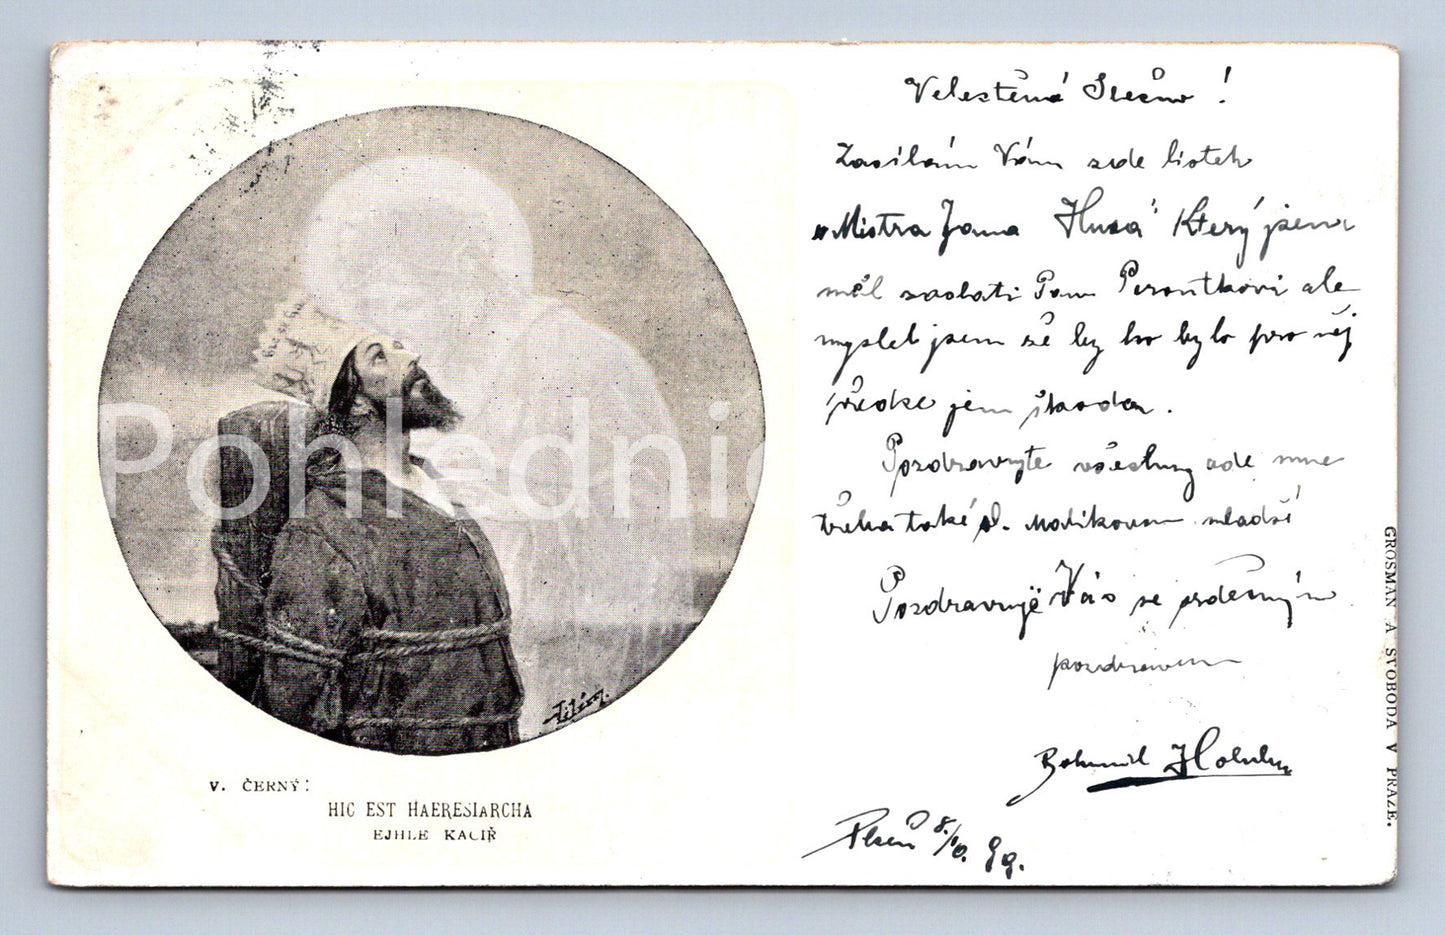 Velectěná Slečno!
Zasílám Vám zde lístek
"Mistra Jana Husa" Který jsem
měl zaslati Panu ale
myslel jsem že by ho bylo pro něj
předce jen škoda.
Pozdravujte všechny ode mne
třeba také sl. mladší
Pozdravuje Vás se srdečným
pozdravem
Bohumil Holub
Plzeň 8/10. 99.
V. ČERNÝ:
HIC EST HAERESIARCHA
EJHLE KACIŘ
GROSMAN A SVOBODA V PRAZE.
Pohlednic